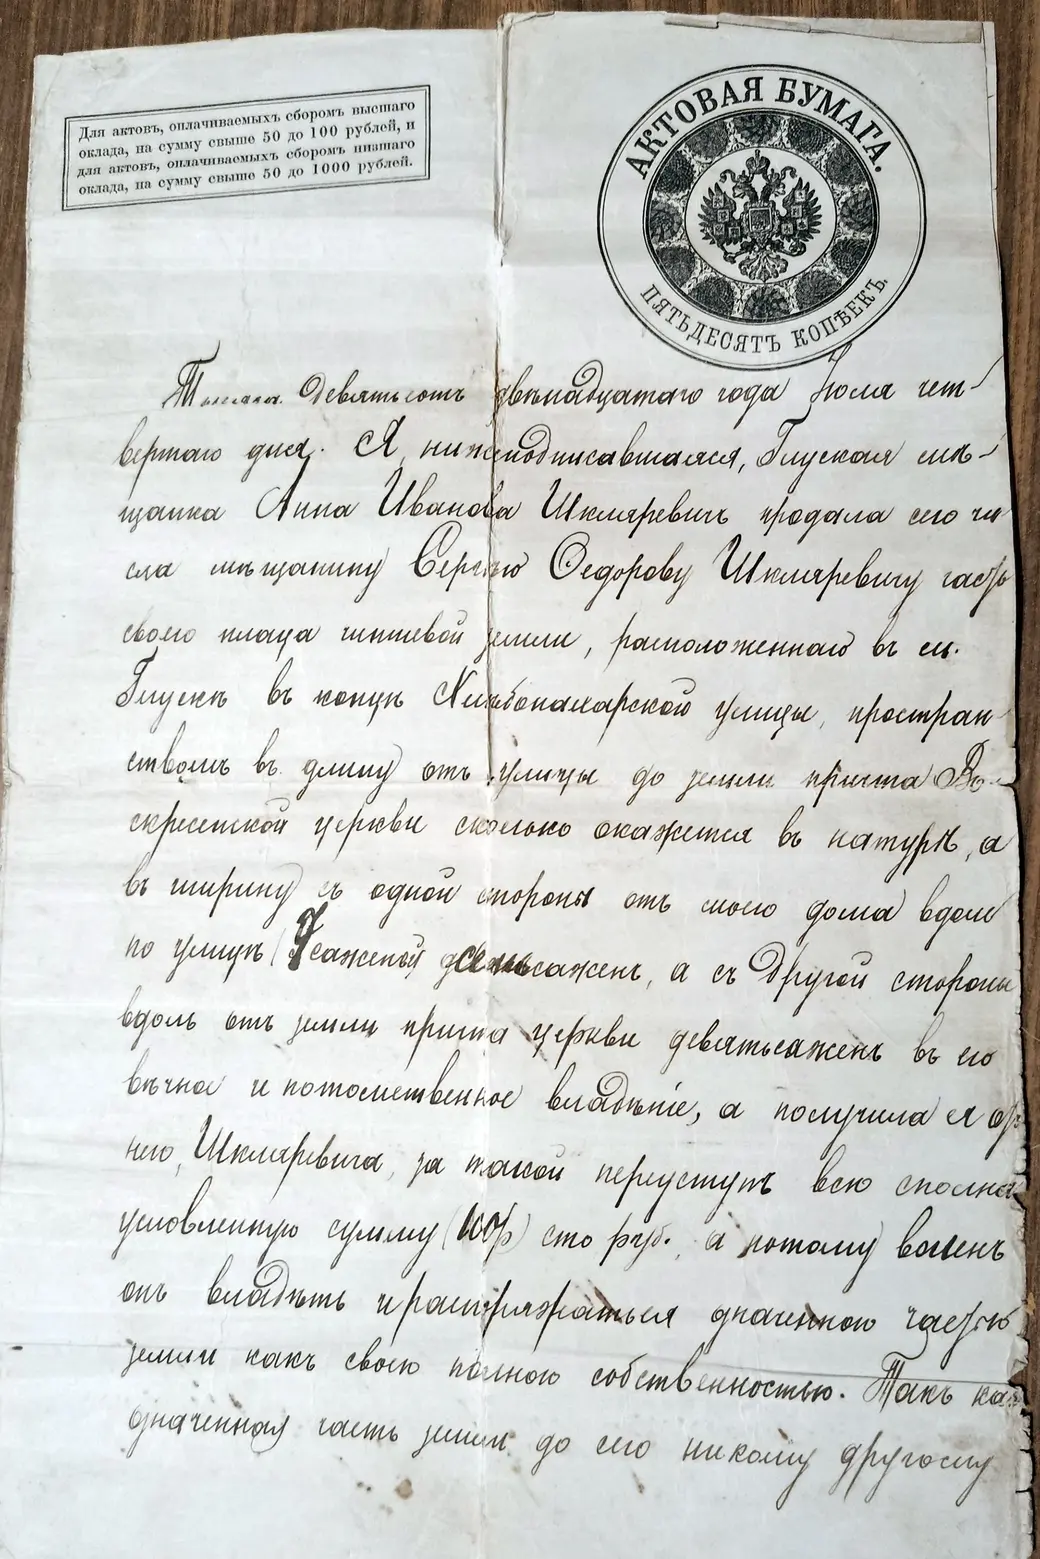 Для актовъ, оплачиваемыхъ сборомъ высшаго
оклада, на сумму свыше 50 до 100 рублей, и
для актовъ, оплачиваемыхъ сборомъ низшаго
оклада, на сумму свыше 50 до 1000 рублей.
АКТОВАЯ БУМАГА.
ПЯТЬДЕСЯТЪ КОПѢЕКЪ.
Тысяча девятьсотъ двѣнадцатаго года Іюля чет-
вертаго дня. Я, нижеподписавшаяся, Глуская мѣ-
щанка Анна Иванова Шкляревичъ продала сего чи
сла мѣщанину Сергѣю Федорову Шкляревичу часть
своего плаца чиншевой земли, расположеннаго въ м.
Глускѣ въ концѣ улицы, простран-
ствомъ въ длину отъ улицы до земли причта Во-
скресенской церкви сколько окажется въ натурѣ, а
въ ширину съ одной стороны отъ моего дома вдоль
по улицѣ сажень, а съ другой стороны
вдоль отъ земли причта церкви девятьсаженъ въ его
вѣчное и потомственное владѣніе, а получила я отъ
него, Шкляревича, за такой переуступъ всю сполна
условленную сумму (100р) сто руб., а потому воленъ
онъ владѣть и распряжаться значенною частью
земли какъ своею полною собственностью. Такъ какъ
означенная часть земли до сего никому другому